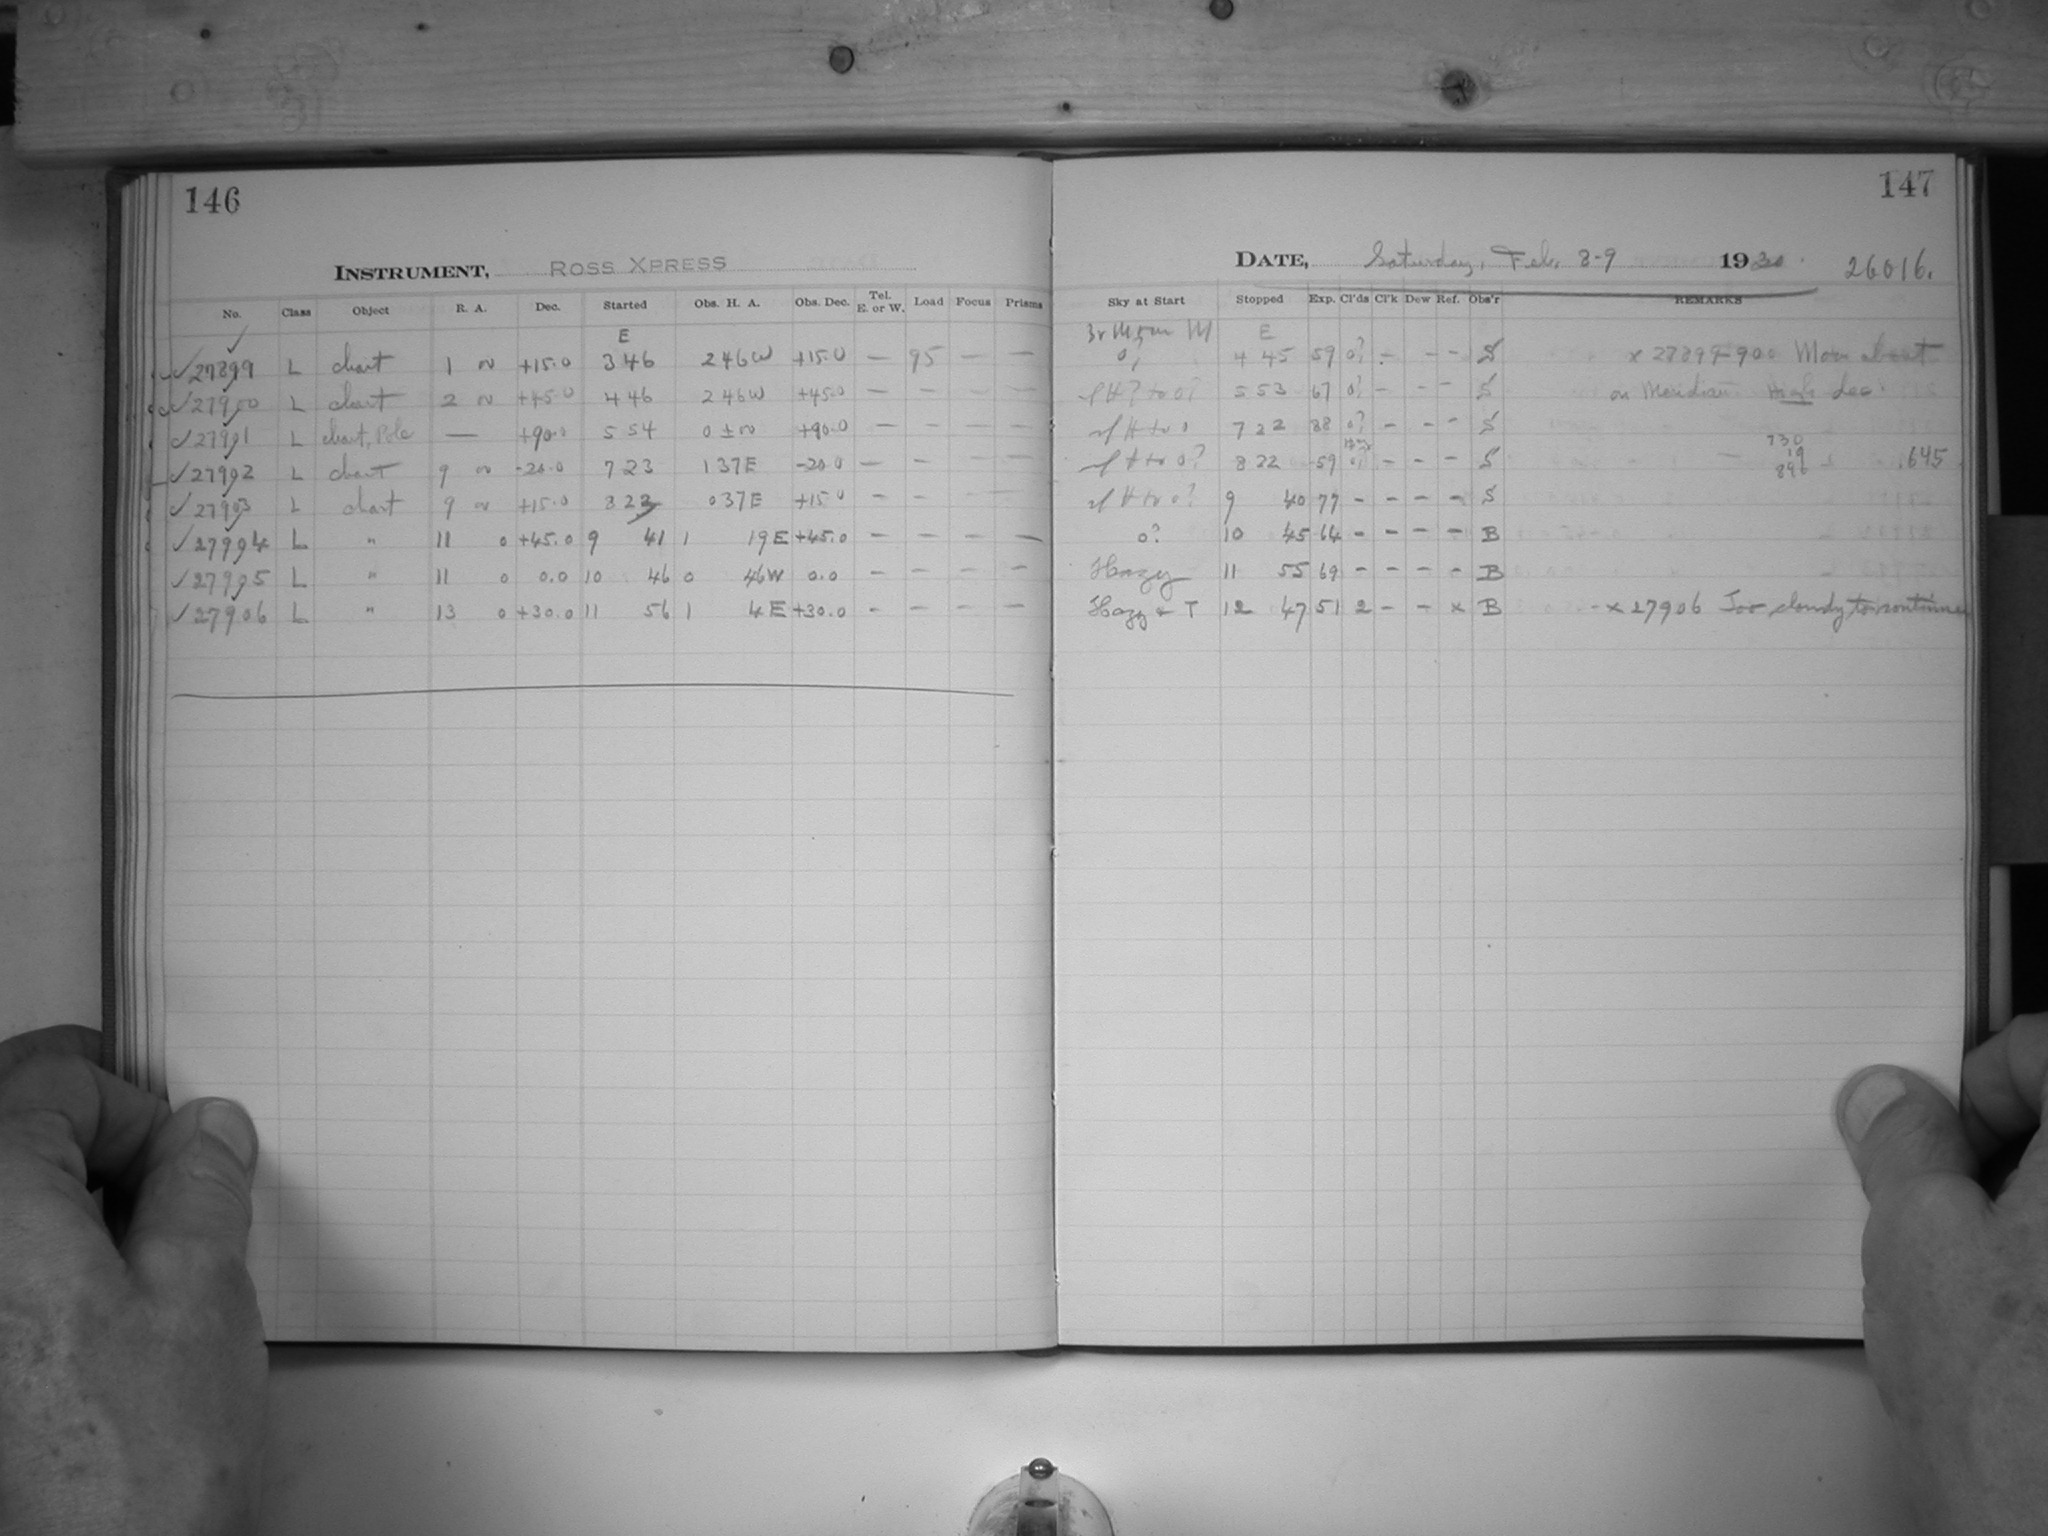 146
INSTRUMENT, ROSS XPRESS
No. Class Object R. A. Dec. Started Obs. H. A. Obs. Dec. Tel. E. or W. Load Focus Prisms
E
✓27899 L chart 1 +15.0 3 46 2 46W +15.0 — 95 — —
✓27900 L chart 2 +45.0 4 46 2 46W +45.0 — — — —
✓27901 L chart, Pole — +90.0 5 54 0 ± +90.0 — — — —
✓27902 L chart 9 -20.0 7 23 1 37E -20.0 — — — —
✓27903 L chart 9 +15.0 8 23 0 37E +15.0 — — — —
✓27904 L " 11 0 +45.0 9 41 1 19E +45.0 — — — —
✓27905 L " 11 0 0.0 10 46 0 46W 0.0 — — — —
✓27906 L " 13 0 +30.0 11 56 1 4E +30.0 — — — —
147
DATE, Saturday, Feb. 8-9 1930. 26016.
Sky at Start Stopped Exp. Cl'ds Cl'k Dew Ref. Obs'r REMARKS
E
4 45 59 0? - - - S x 27899+900 Moon about
5 53 67 0? - - - S on Meridian High dec.
7 22 88 0? - - - S
730
19
8 22 59 - - - S 896 .645
9 40 77 - - - - S
0? 10 45 64 - - - - B
Hazy 11 55 69 - - - - B
Hazy + T 12 47 51 2 - - x B - x 27906 Too cloudy to continue